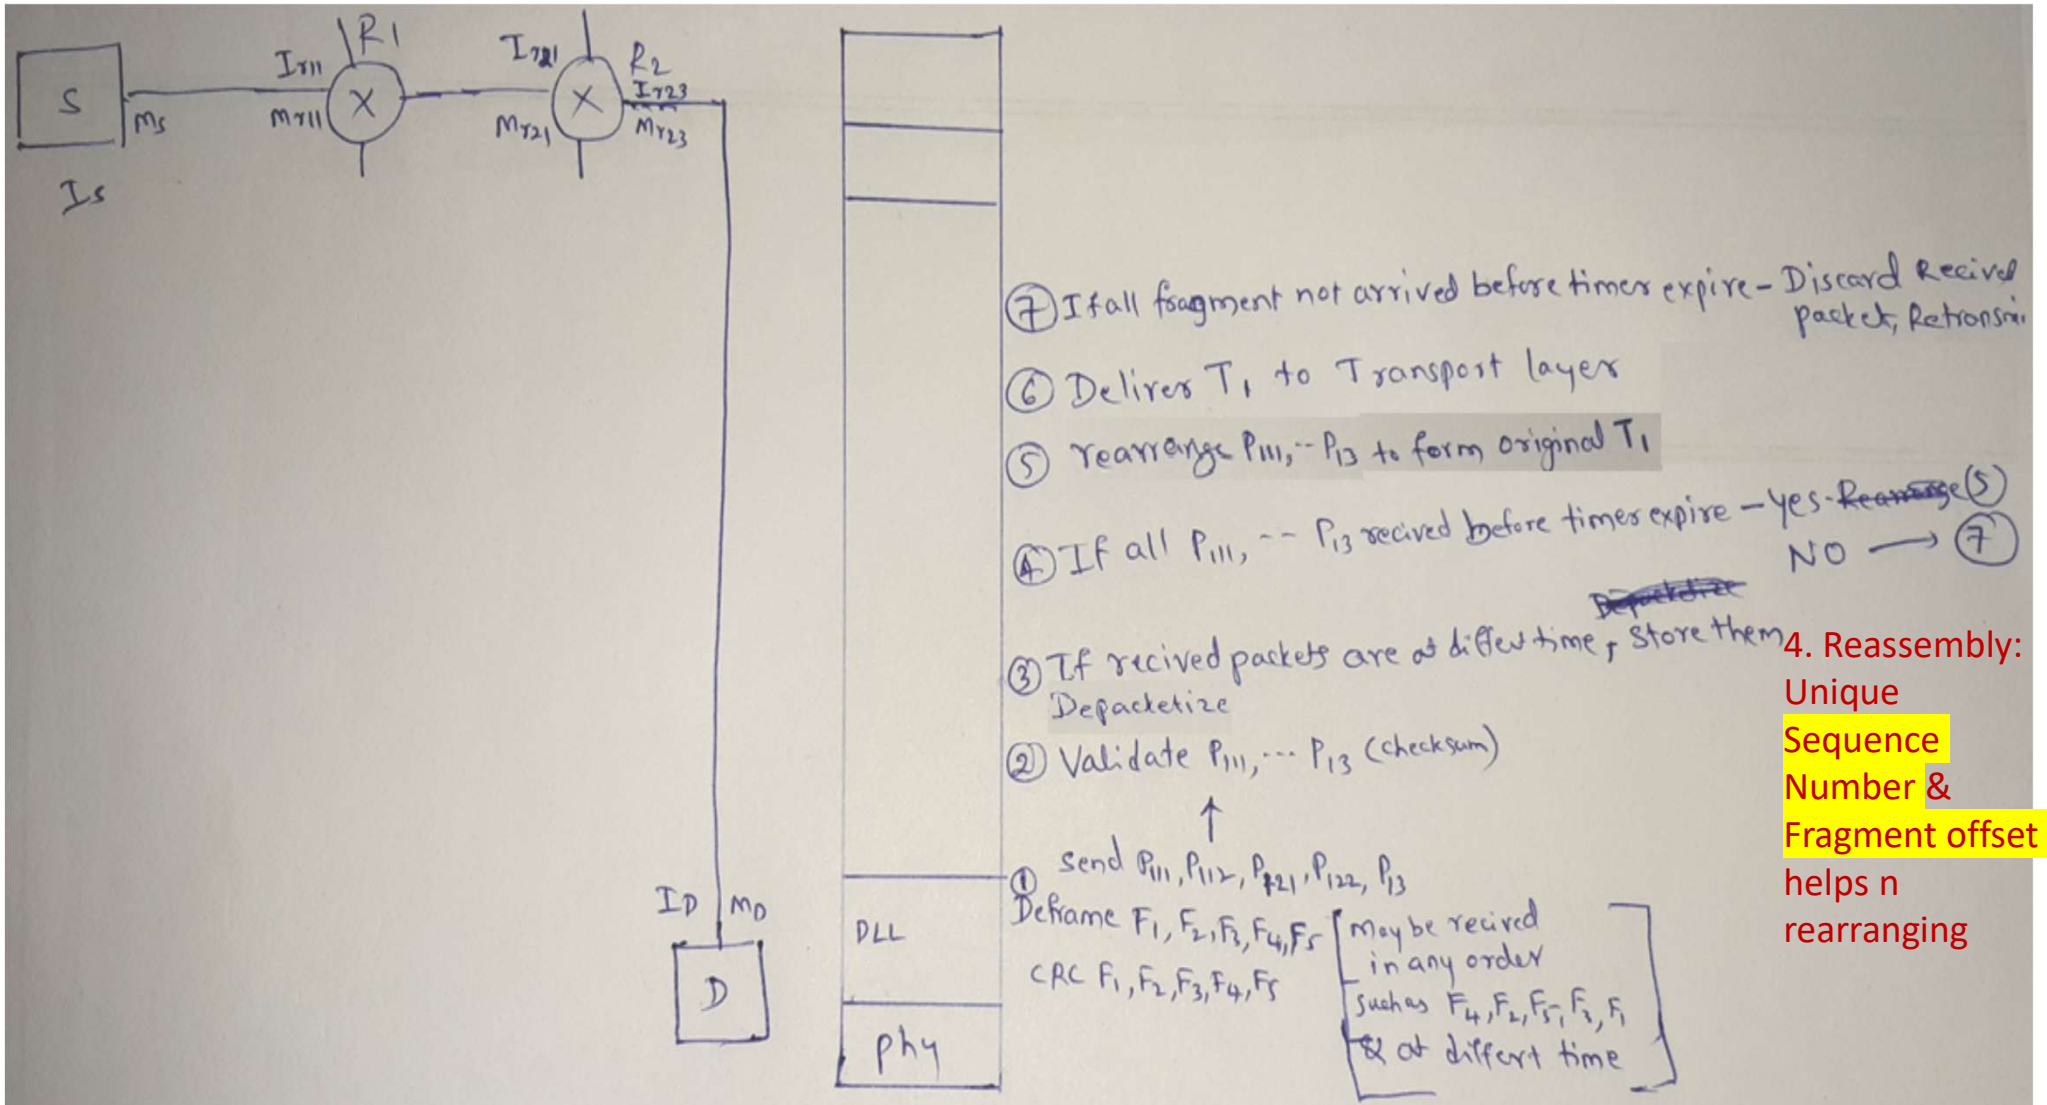 R1
Ir11
Ir21
R2
Ir23
S
Ms
Mr11
X
Mr21
X
Mr23
Is
⑦ If all fragment not arrived before timer expire - Discard Recived
packet, Retransmi
⑥ Deliver T1 to Transport layer
⑤ rearrange P111, -- P13 to form original T1
④ If all P111, -- P13 recived before timer expire - yes - ⑤
NO → ⑦
③ If recived packets are at differt time, store them
Depacketize
② Validate P111, --- P13 (checksum)
↑
① send P111, P112, P121, P122, P13
Deframe F1, F2, F3, F4, F5 [may be recived
in any order
such as F4, F2, F5, F3, F1
& at differt time]
CRC F1, F2, F3, F4, F5
DLL
phy
ID MD
D
4. Reassembly:
Unique
Sequence
Number &
Fragment offset
helps n
rearranging